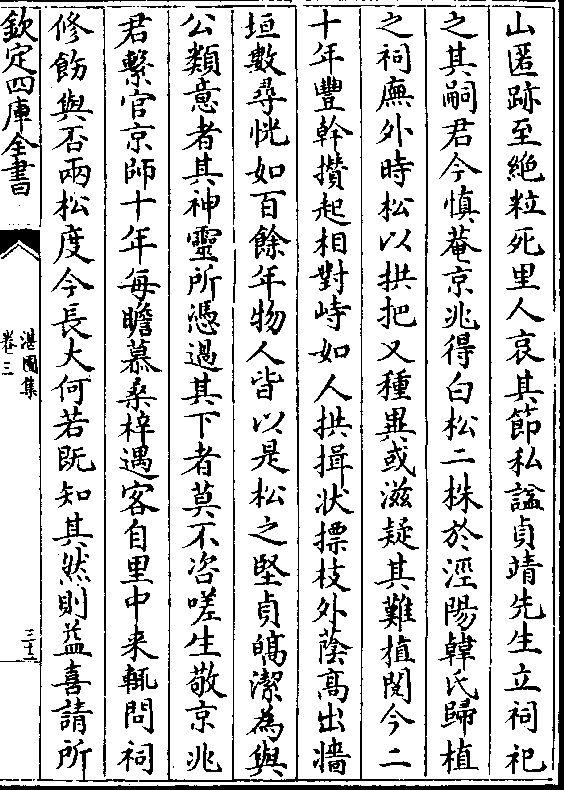 山匿跡至絶粒死里人哀其節私諡貞靖先生立祠祀
之其嗣君今慎菴京兆得白松二株於涇陽韓氏歸植
之祠廡外時松以拱把又種異或滋疑其難植閲今二
十年豐幹攢起相對峙如人拱揖状摽枝外蔭髙出墻
垣數尋恍如百餘年物人皆以是松之堅貞皜潔為與
公類意者其神靈所憑過其下者莫不咨嗟生敬京兆
君繫官京師十年每瞻慕桑梓遇客自里中来輒問祠
修飭與否兩松度今長大何若既知其然則益喜請所
欽定四庫全書
湛園集
卷三
三十二